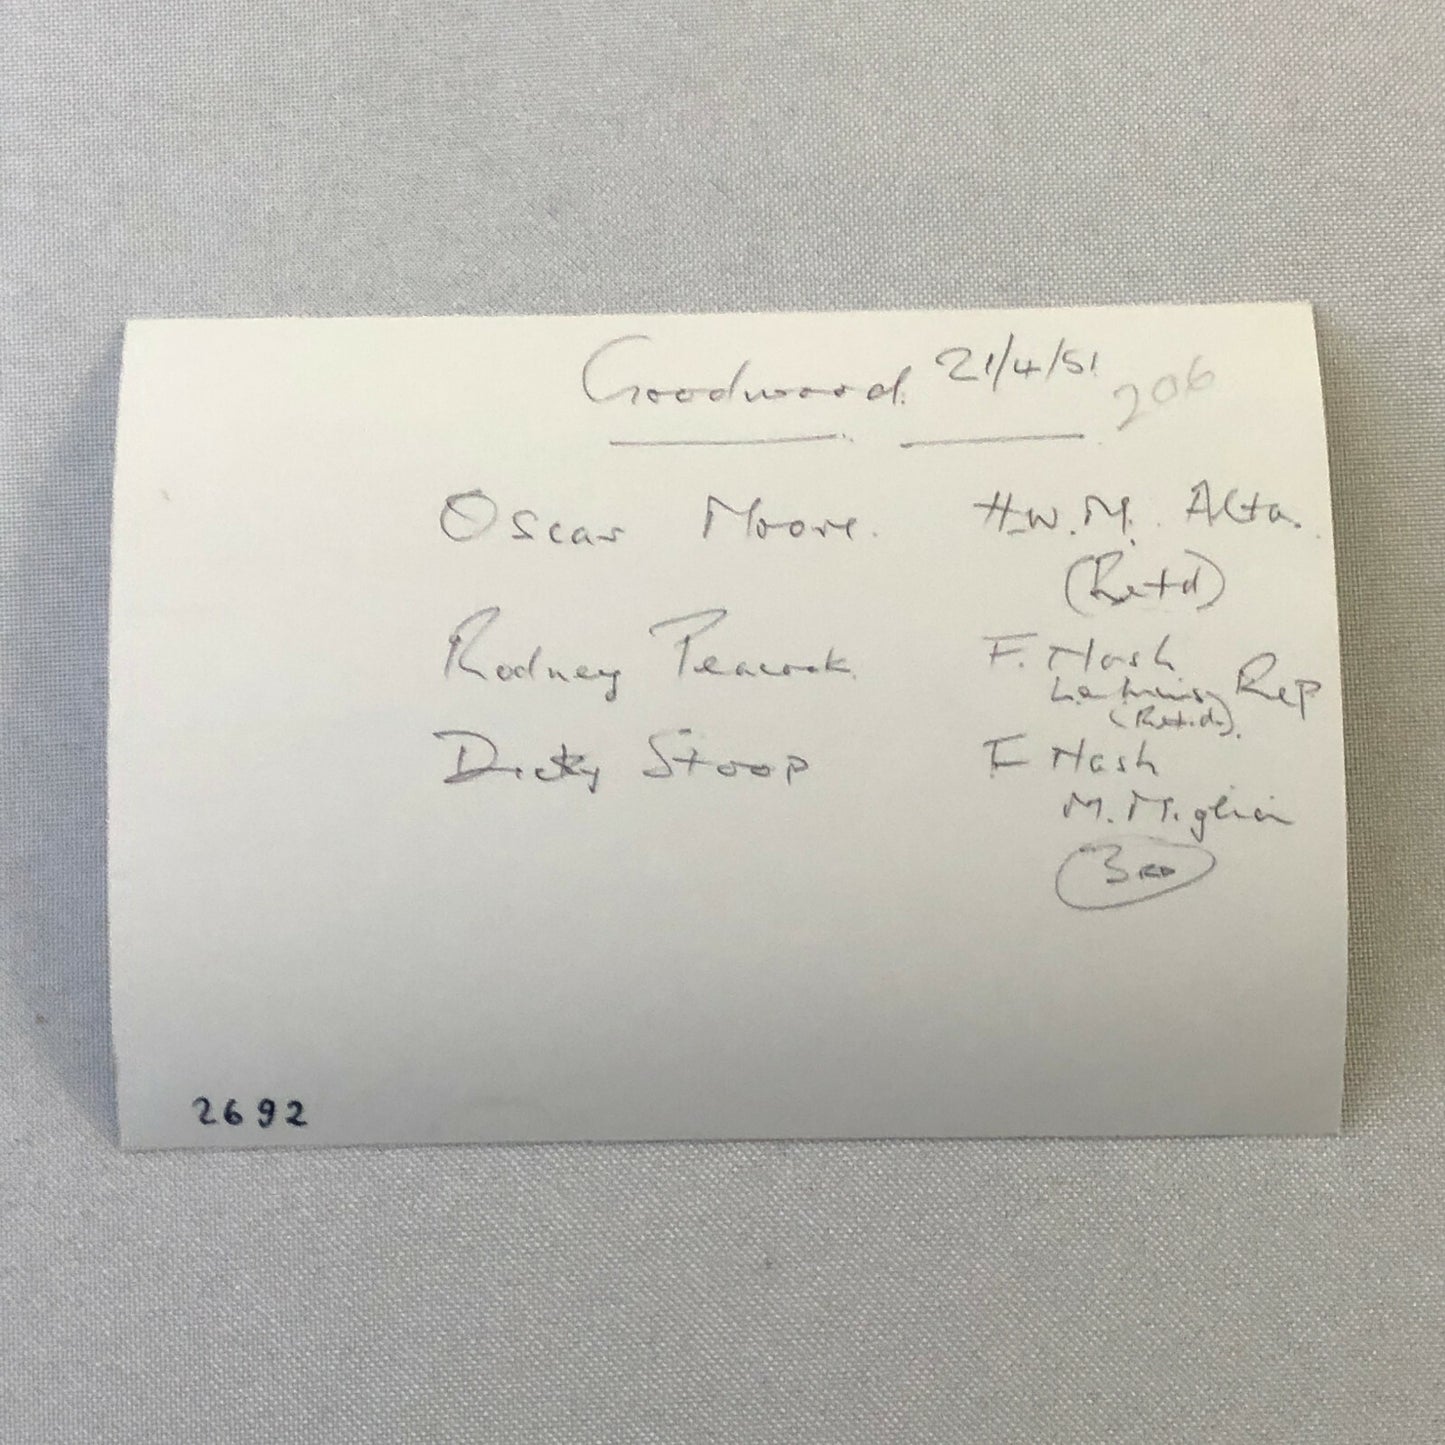 Goodwood. 21/4/51 206
Oscar Moore. H.W.M. Alta.
(Retd)
Rodney Peacock F. Nash
Le Mans Rep
(Retd).
Dicky Stoop F Nash
M. Miglia
3RD
2692